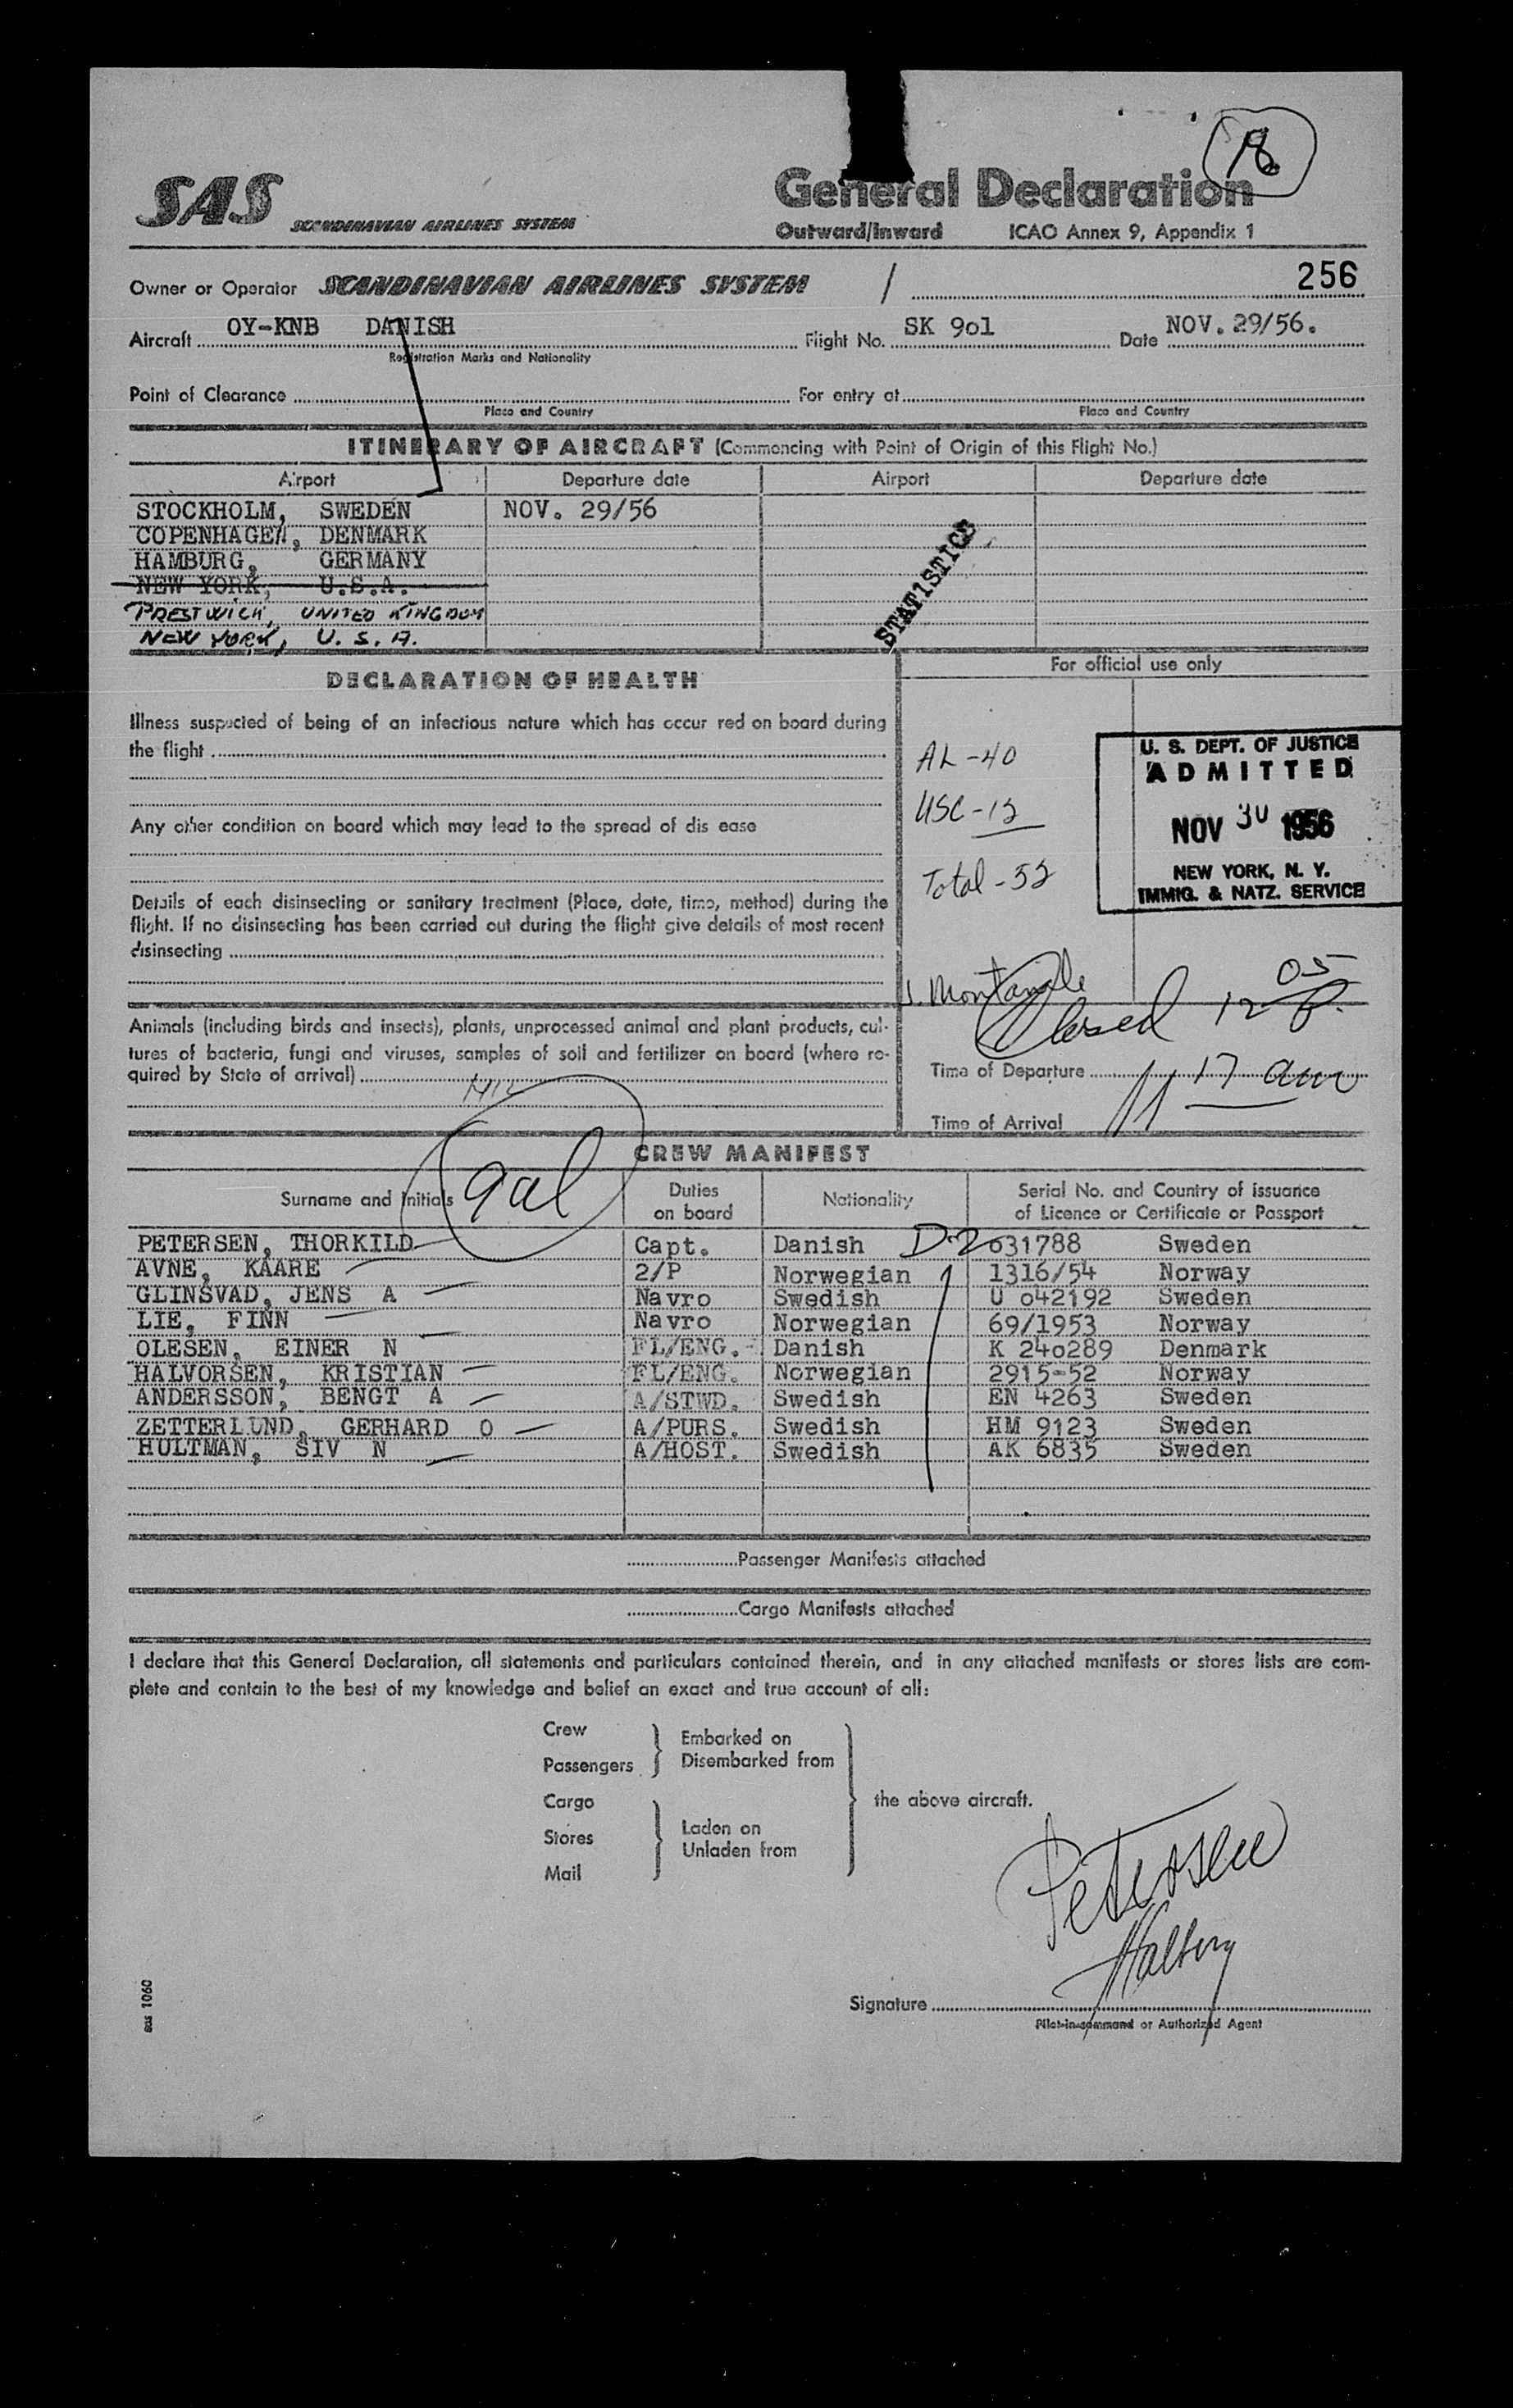 18
SAS SCANDINAVIAN AIRLINES SYSTEM
General Declaration
Outward/Inward ICAO Annex 9, Appendix 1
Owner or Operator SCANDINAVIAN AIRLINES SYSTEM / 256
Aircraft OY-KNB DANISH Flight No. SK 9o1 Date NOV. 29/56.
Registration Marks and Nationality
Point of Clearance For entry at
Place and Country Place and Country
ITINERARY OF AIRCRAFT (Commencing with Point of Origin of this Flight No.)
Airport Departure date Airport Departure date
STOCKHOLM, SWEDEN NOV. 29/56
COPENHAGEN, DENMARK
HAMBURG, GERMANY
NEW YORK, U.S.A.
PRESTWICH, UNITED KINGDOM
NEW YORK, U.S.A.
STATISTICS
DECLARATION OF HEALTH
For official use only
Illness suspected of being of an infectious nature which has occur red on board during
the flight
Any other condition on board which may lead to the spread of dis ease
Details of each disinsecting or sanitary treatment (Place, date, time, method) during the
flight. If no disinsecting has been carried out during the flight give details of most recent
disinsecting
AL-40
USC-12
Total-52
U. S. DEPT. OF JUSTICE
ADMITTED
NOV 30 1956
NEW YORK, N. Y.
IMMIG. & NATZ. SERVICE
Closed 12 05 P.
Animals (including birds and insects), plants, unprocessed animal and plant products, cul-
tures of bacteria, fungi and viruses, samples of soil and fertilizer on board (where re-
quired by State of arrival) NIL
Time of Departure
11 17 am
Time of Arrival
CREW MANIFEST
Surname and Initials Duties on board Nationality Serial No. and Country of issuance of Licence or Certificate or Passport
D-2
PETERSEN, THORKILD Capt. Danish 631788 Sweden
AVNE, KAARE 2/P Norwegian 1316/54 Norway
GLINSVAD, JENS A Navro Swedish U o42192 Sweden
LIE, FINN Navro Norwegian 69/1953 Norway
OLESEN, EINER N FL/ENG. Danish K 24o289 Denmark
HALVORSEN, KRISTIAN FL/ENG. Norwegian 2915-52 Norway
ANDERSSON, BENGT A A/STWD. Swedish EN 4263 Sweden
ZETTERLUND, GERHARD O A/PURS. Swedish HM 9123 Sweden
HULTMAN, SIV N A/HOST. Swedish AK 6835 Sweden
Passenger Manifests attached
Cargo Manifests attached
I declare that this General Declaration, all statements and particulars contained therein, and in any attached manifests or stores lists are com-
plete and contain to the best of my knowledge and belief an exact and true account of all:
Crew
Passengers
Embarked on
Disembarked from
Cargo
Stores
Mail
Laden on
Unladen from
the above aircraft.
Petersen
Signature
Pilot-in-command or Authorized Agent
sas 1060